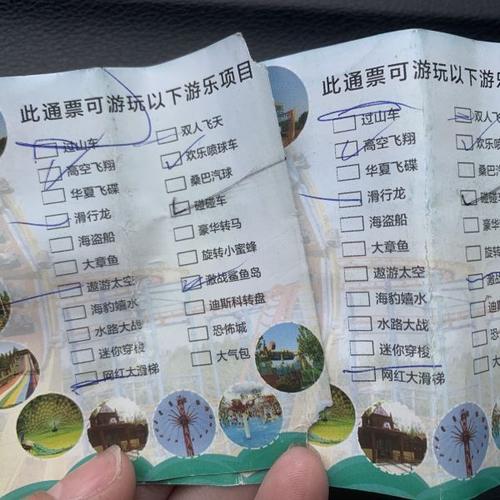 此通票可游玩以下游乐项目
过山车
高空飞翔
华夏飞碟
滑行龙
海盗船
大章鱼
遨游太空
海豹嬉水
水路大战
迷你穿梭
网红大滑梯
双人飞天
欢乐喷球车
桑巴汽球
碰碰车
豪华转马
旋转小蜜蜂
激战鲨鱼岛
迪斯科转盘
恐怖城
大气包
此通票可游玩以下游乐
过山车
高空飞翔
华夏飞碟
滑行龙
海盗船
大章鱼
遨游太空
海豹嬉水
水路大战
迷你穿梭
网红大滑梯
双人
欢乐
桑巴
碰碰
豪华
旋转
激
迪斯
恐
大